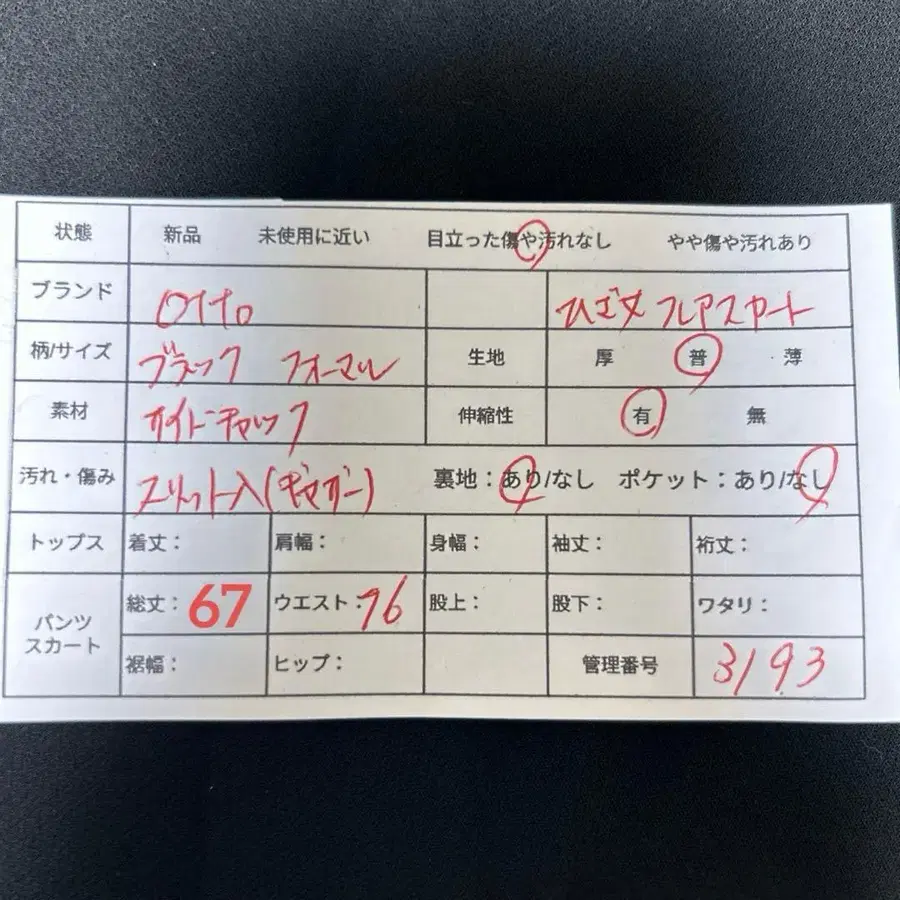 状態 新品 未使用に近い 目立った傷や汚れなし やや傷や汚れあり
ブランド Otto ひざ丈 フレアスカート
柄/サイズ ブラック フォーマル 生地 厚 普 薄
素材 サイドチャック 伸縮性 有 無
汚れ・傷み スリット入(ギャザー) 裏地：あり/なし ポケット：あり/なし
トップス 着丈： 肩幅： 身幅： 袖丈： 裄丈：
パンツ スカート 総丈：67 ウエスト：76 股上： 股下： ワタリ：
裾幅： ヒップ： 管理番号 3193